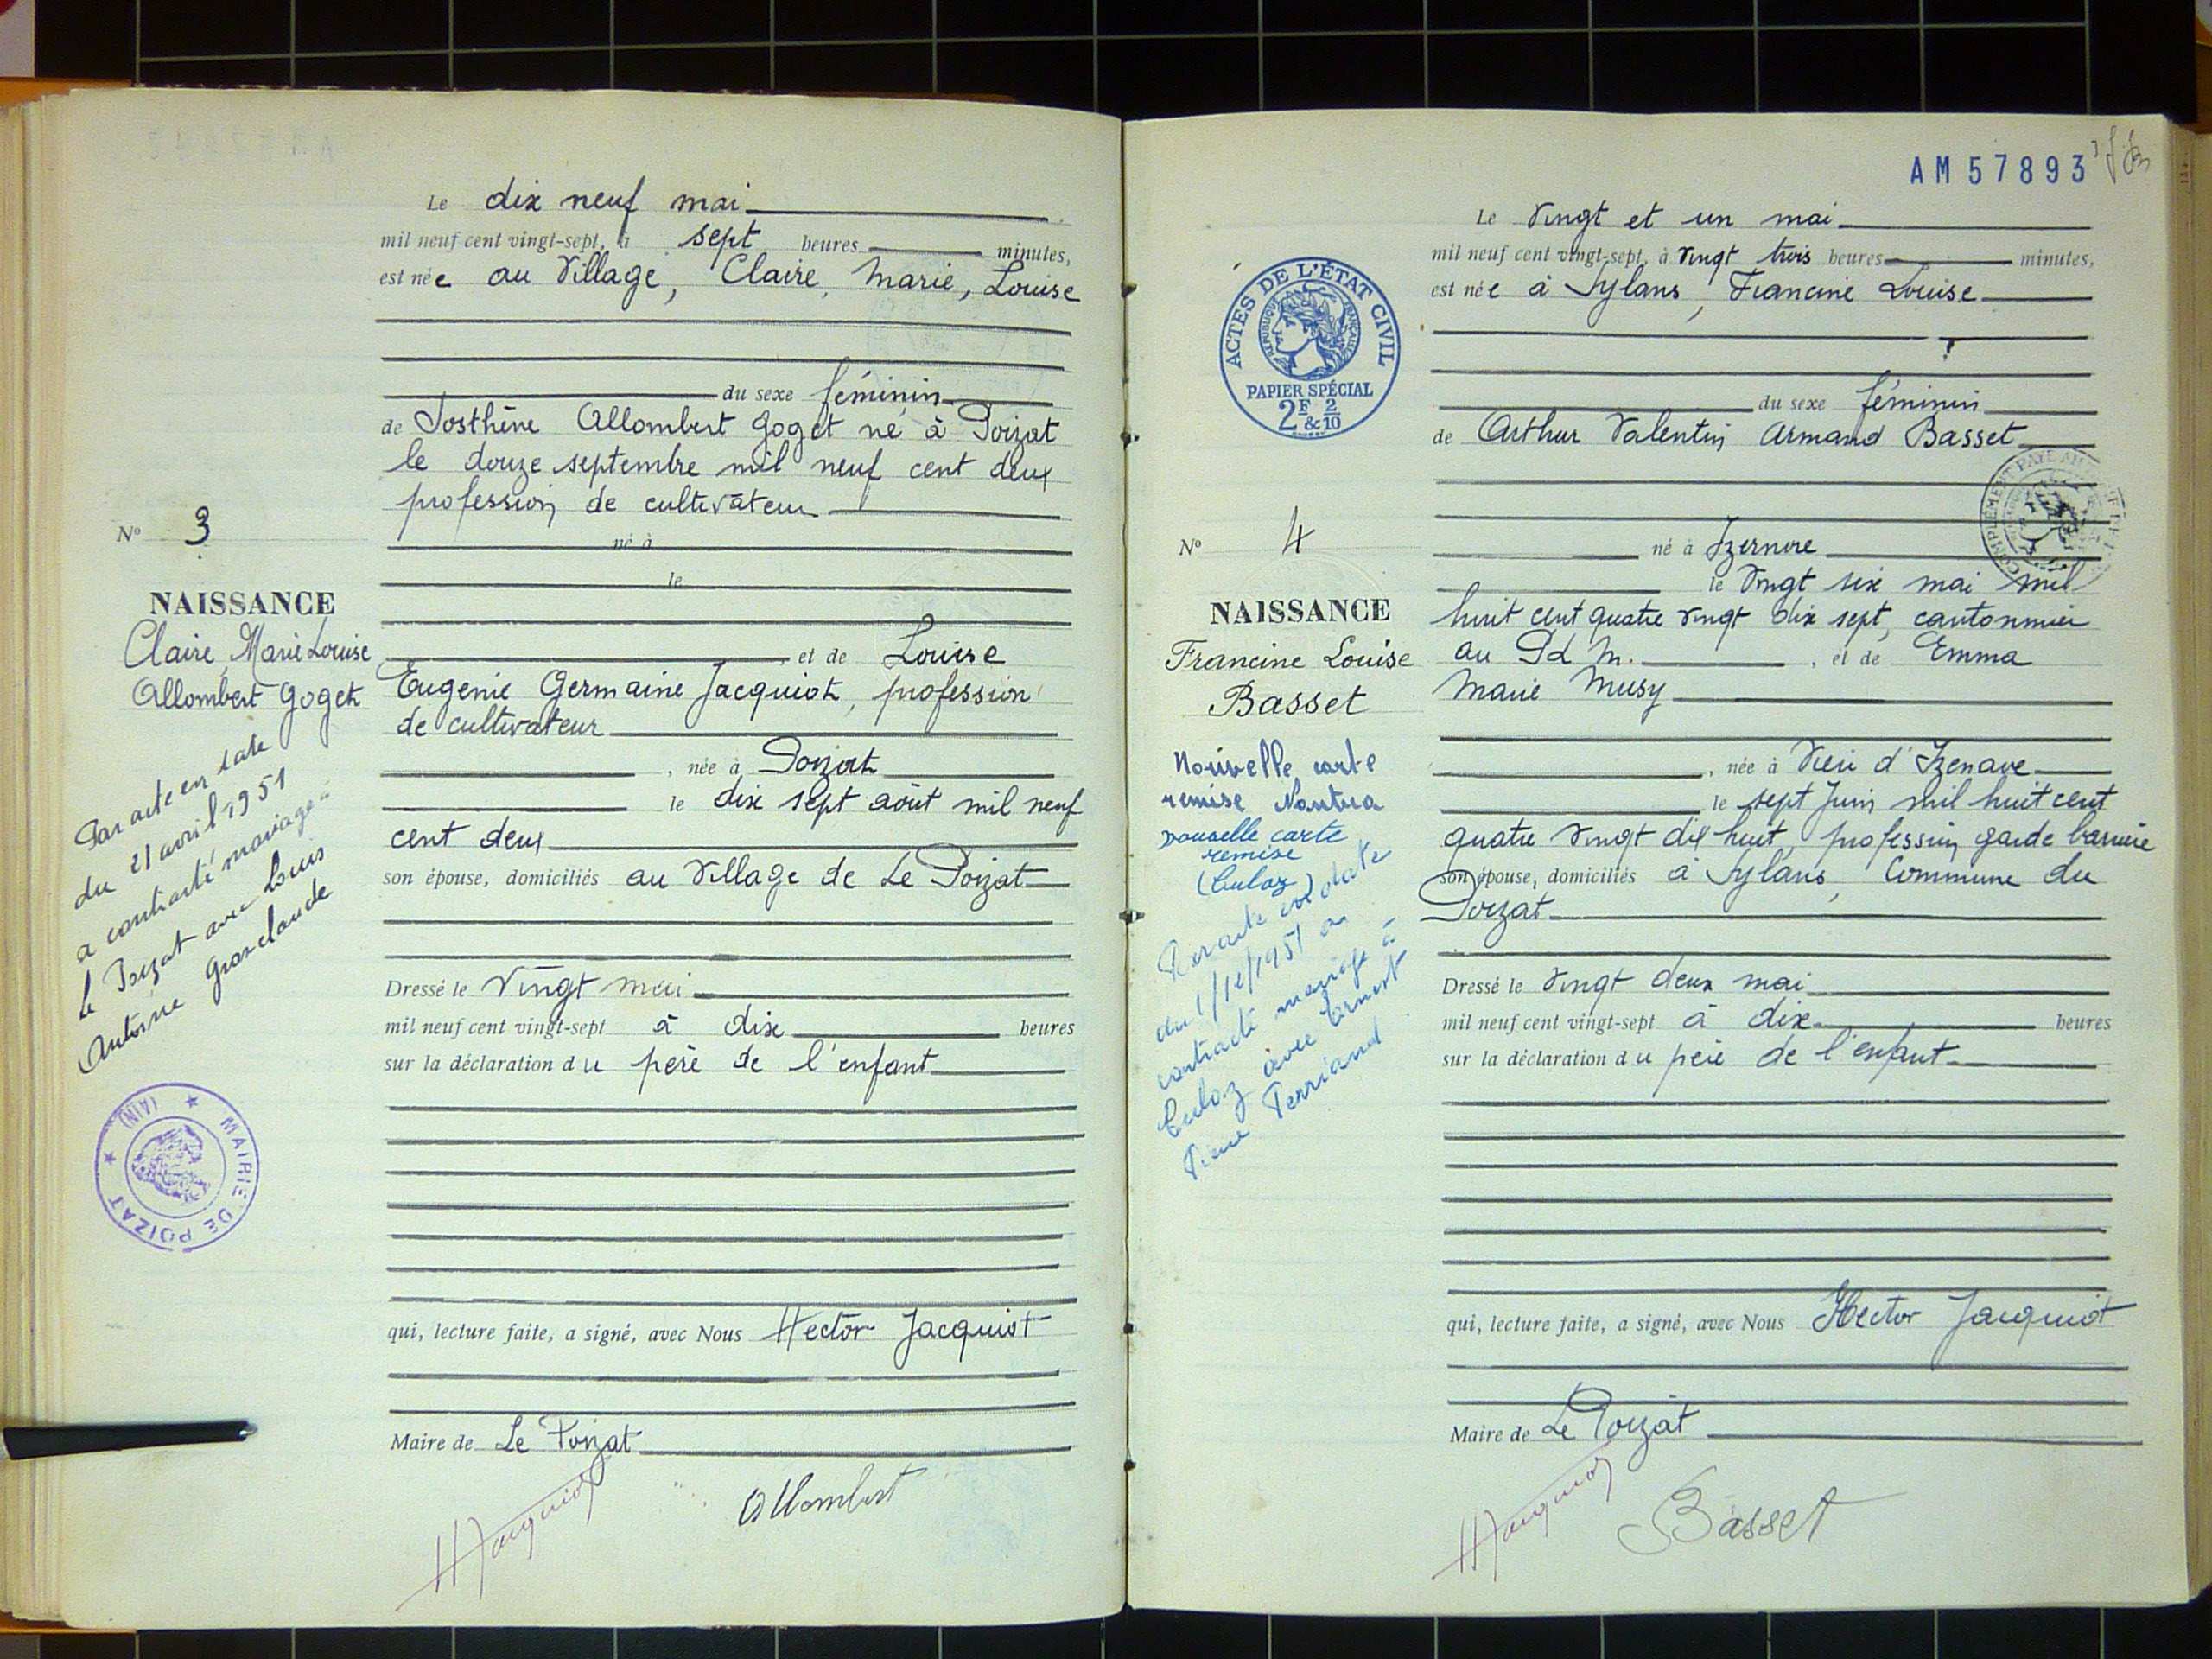 Le dix neuf mai
mil neuf cent vingt-sept, à sept heures minutes,
est née au Village, Claire, Marie, Louise
du sexe féminin
de Sosthène Allombert Goget né à Poizat
le douze septembre mil neuf cent deux
profession de cultivateur
né à
le
et de Louise
Eugenie Germaine Jacquiot, profession
de cultivateur
, née à Poizat
le dix sept août mil neuf
cent deux
son épouse, domiciliés au Village de Le Poizat
Dressé le Vingt mai
mil neuf cent vingt-sept à dix heures
sur la déclaration du père de l'enfant
qui, lecture faite, a signé, avec Nous Hector Jacquiot
Maire de Le Poizat
HJacquiot
Allombert
N° 3
NAISSANCE
Claire, Marie Louise
Allombert Goget
Par acte en date
du 21 avril 1951
a contracté mariage à
le Poizat avec Louis
Antoine Grosclaude
MAIRIE DE POIZAT (AIN)
AM 57893
Le Vingt et un mai
mil neuf cent vingt-sept, à Vingt trois heures minutes,
est née à Sylans, Francine Louise
du sexe féminin
de Arthur Valentin Armand Basset
né à Izernore
le Vingt six mai mil
huit cent quatre vingt dix sept, cantonnier
au P d M. , et de Emma
Marie Musy
, née à Vieu d'Izenave
le sept Juin mil huit cent
quatre Vingt dix huit, profession garde barrière
son épouse, domiciliés à Sylans, Commune du
Poizat
Dressé le Vingt deux mai
mil neuf cent vingt-sept à dix heures
sur la déclaration du père de l'enfant
qui, lecture faite, a signé, avec Nous Hector Jacquiot
Maire de Le Poizat
HJacquiot
Basset
ACTES DE L'ÉTAT CIVIL
RÉPUBLIQUE FRANÇAISE
PAPIER SPÉCIAL
2F & 2/10
N° 4
NAISSANCE
Francine Louise
Basset
Nouvelle carte
remise Nantua
nouvelle carte
remise
(Culoz)
Par acte en date
du 1/12/1951 a
contracté mariage à
Culoz avec Ernest
Pierre Perriand